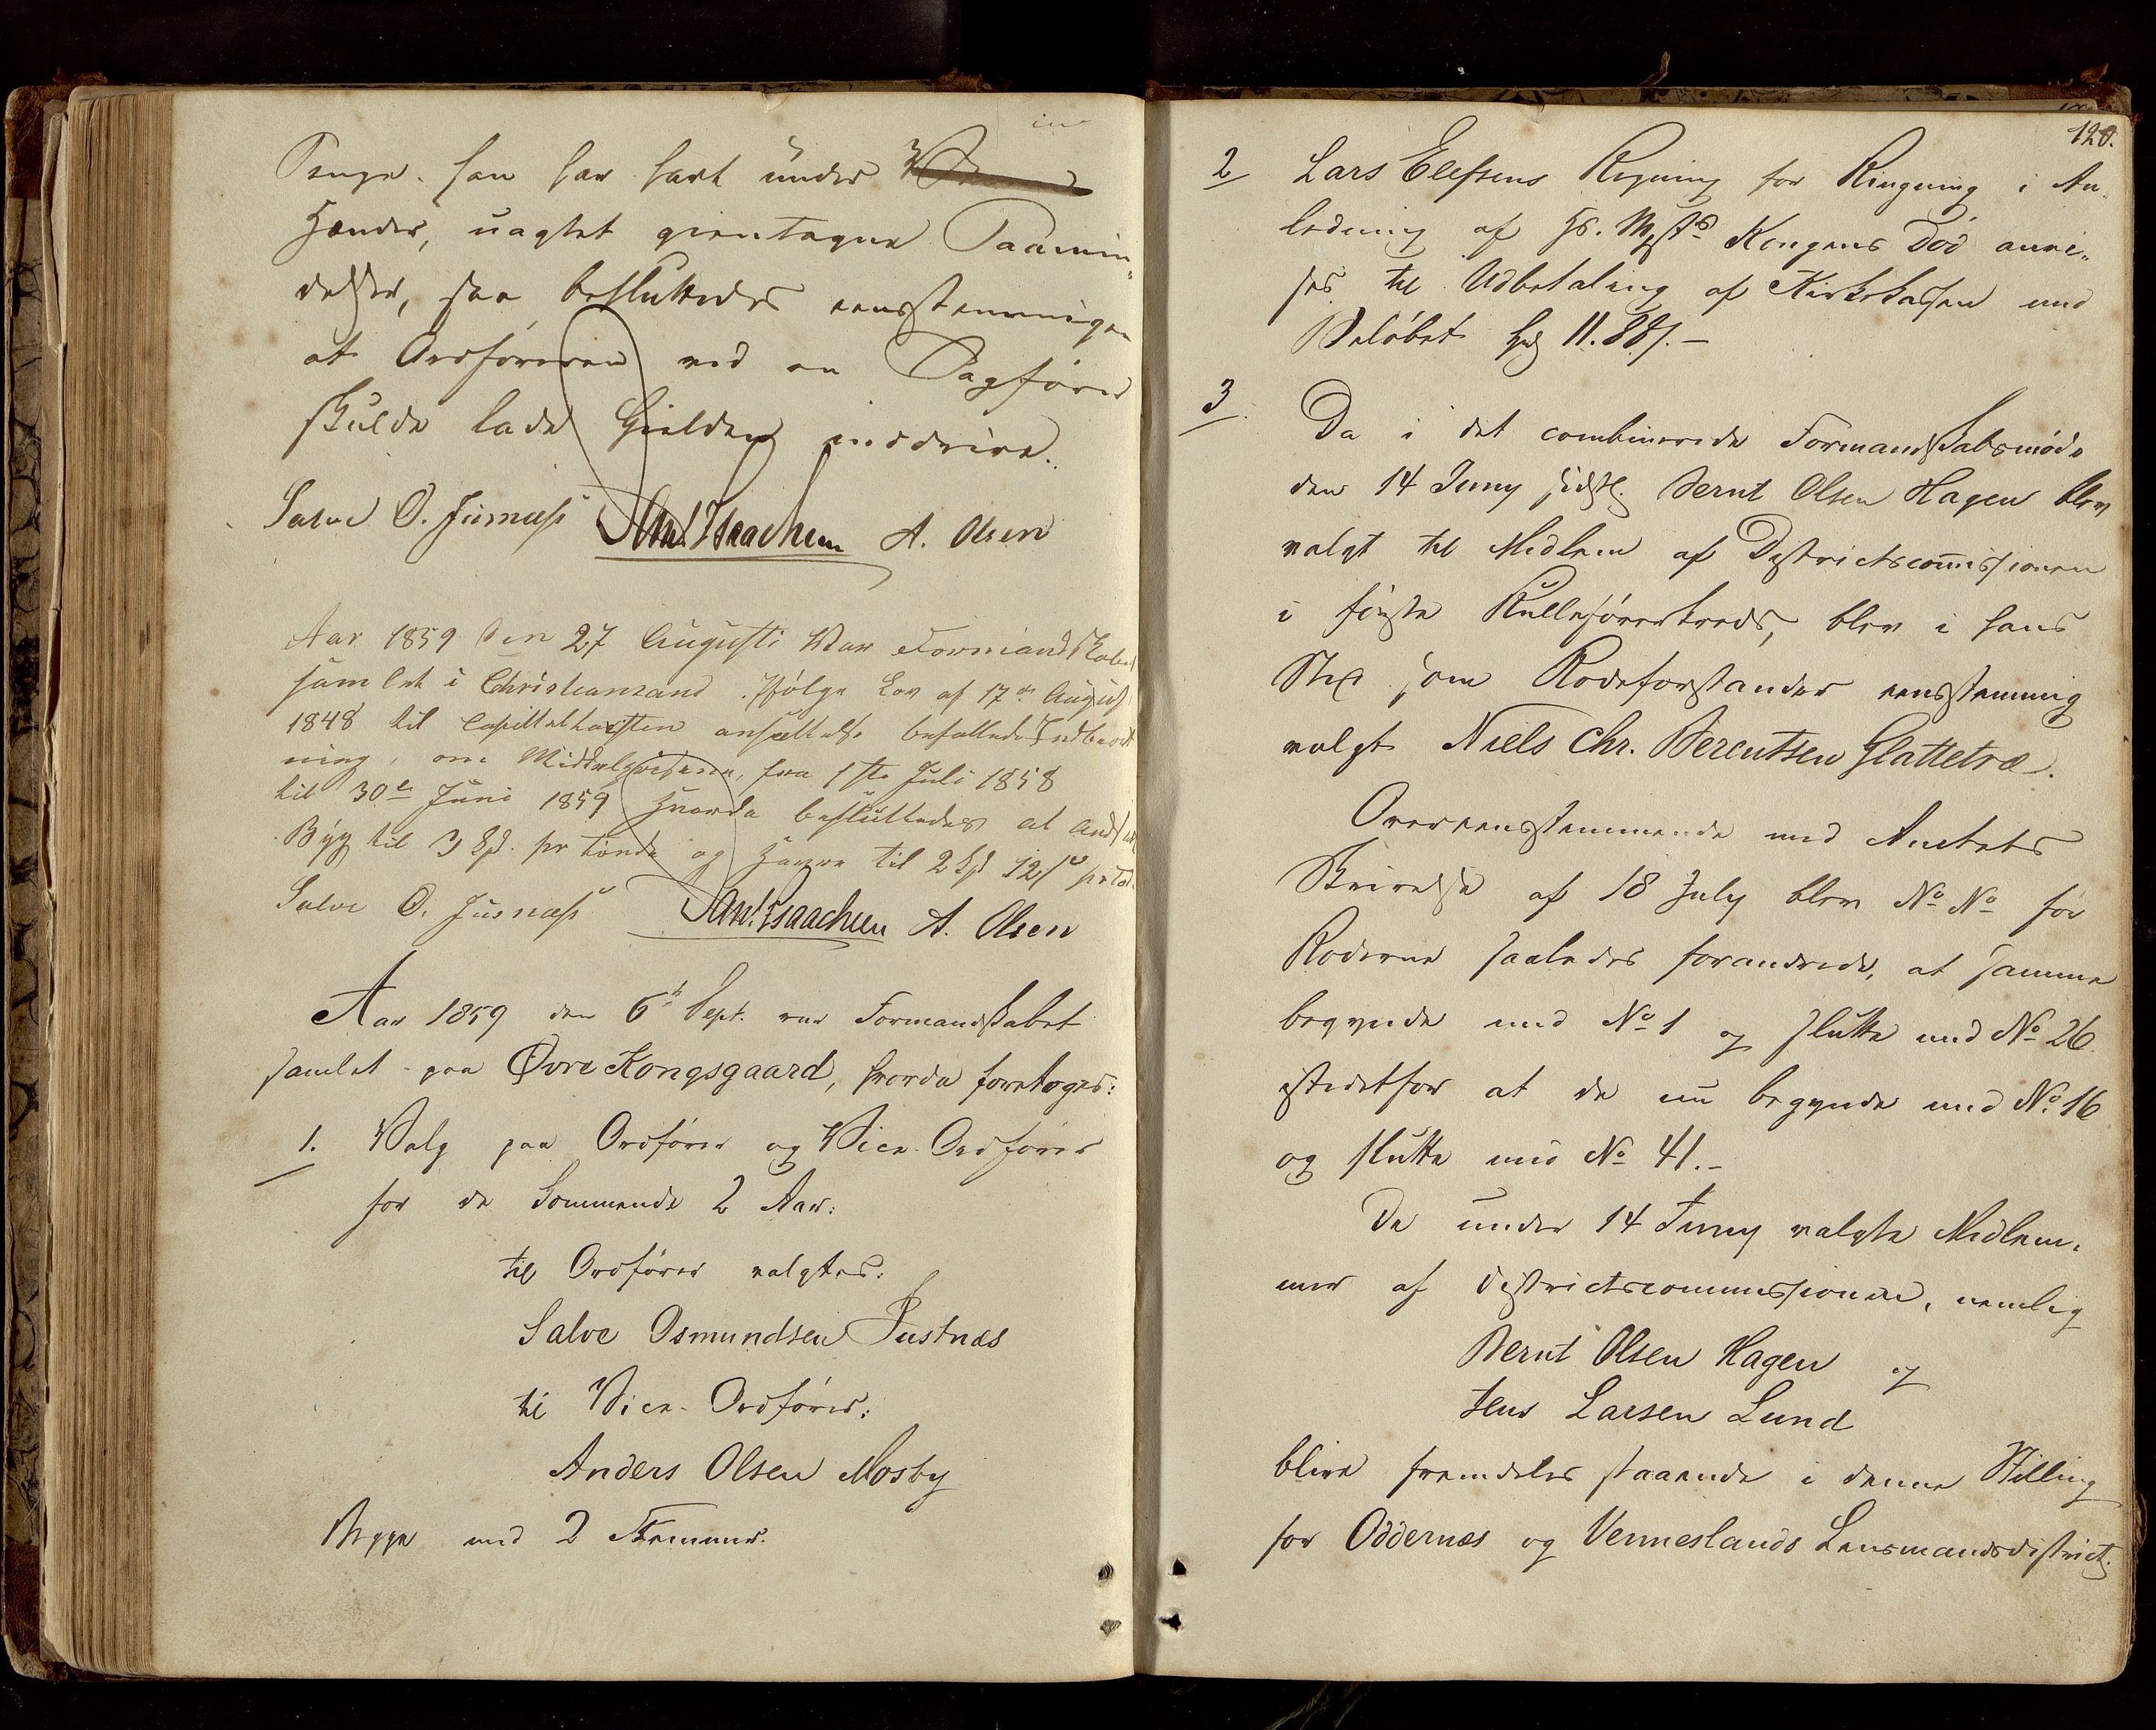 Penge han har havt under
Hænder, uagtet gjentagne Paamin-
delser, saa besluttedes eensstemmigen
at Ordføreren ved en Sagfører
skulde lade Gjelden inddrive.
Salve O. Jusnæss Ant. Isaachsen A. Olsen
Aar 1859 den 27 Augusti var Formandskabet
samlet i Christiansand Ifølge Lov af 17de August
1848 til Capitteltaxsten ansættelse befallede Indberet
ning, om Middelprisene, fra 1ste Juli 1858
til 30te Juni 1859 hvorda besluttedes at ansætte
Byg til 3 Spd. pr tønde og Havre til 2 Spd 12 s pr Td.
Salve O. Jusnæss Ant. Isaachsen A. Olsen
Aar 1859 den 6te Sept. var Formandskabet
samlet paa Øvre Kongsgaard, hvorda foretoges:
1. Valg paa Ordfører og Vice-Ordfører
for de kommende 2 Aar:
til Ordfører valgtes:
Salve Osmundsen Justnæs
til Vice-Ordfører:
Anders Olsen Mosby
Begge med 2 Stemmer.
120.
2 Lars Elefsens Regning for Ringning i An-
ledning af Hs. Mjsts Kongens Död anvi-
ses til Udbetaling af Kirkekassen med
Beløbet 11.88/.-
3. Da i det combinerede Formandskabsmøde
den 14 Juny sidstl. Bernt Olsen Hagen blev
valgt til Medlem af Districtscommissionen
i første Rulleførerkreds, blev i hans
Sted som Rodeforstander eensstemmig
valgt Niels Chr. Berentsen Glattetræ.
Overeensstemmende med Amtets
Skrivelse af 18 July blev No No for
Roderne saaledes forandrede, at samme
begynde med No 1 og slutte med No 26
istedetfor at de nu begynde med No 16
og slutte med No 41.-
De under 14 Juny valgte Medlem-
mer af Districtscommissionen, nemlig
Bernt Olsen Hagen og
Jens Larsen Lund
blive fremdeles staaende i denne Stilling
for Oddernes og Venneslands Lensmandsdistrict.